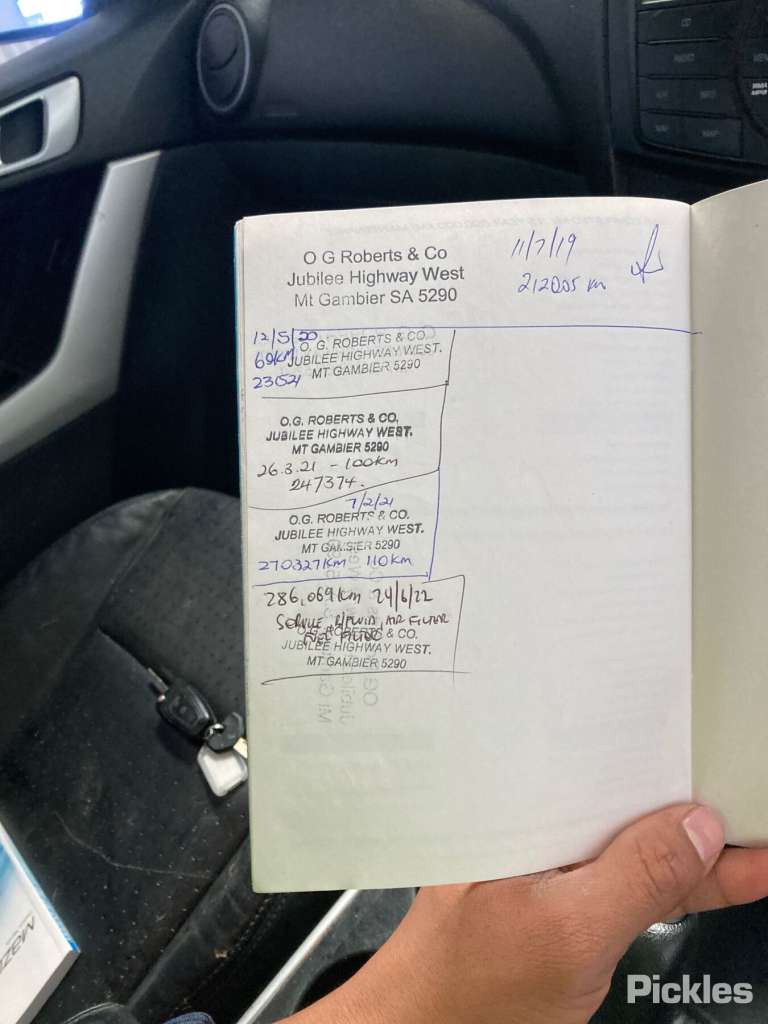 O G Roberts & Co
Jubilee Highway West
Mt Gambier SA 5290
11/7/19
212005 km
12/5/20
60km
230521
O. G. ROBERTS & CO.
JUBILEE HIGHWAY WEST.
MT GAMBIER 5290
O.G. ROBERTS & CO.
JUBILEE HIGHWAY WEST.
MT GAMBIER 5290
26.3.21 - 100km
247374.
7/2/21
O.G. ROBERTS & CO.
JUBILEE HIGHWAY WEST.
MT GAMBIER 5290
270327km 110km
286,069km 24/6/22
SERVICE, B/FLUID, AIR FILTER
FUEL FILTER
O.G. ROBERTS & CO.
JUBILEE HIGHWAY WEST.
MT GAMBIER 5290
Pickles